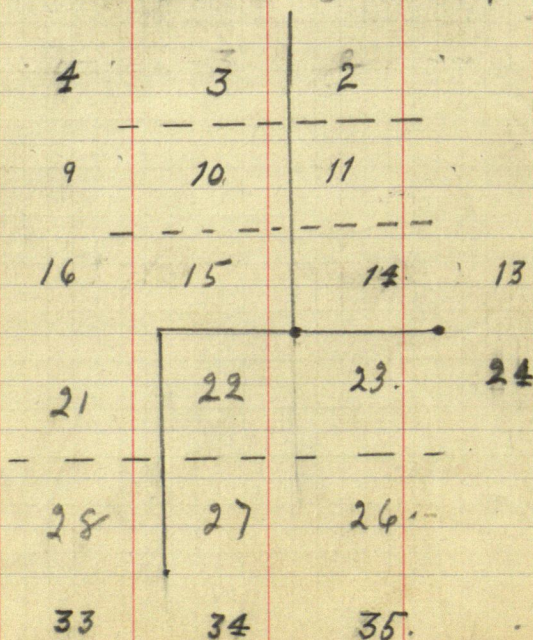 4 3 2
9 10 11
16 15 14 13
21 22 23. 24
28 27 26.
33 34 35.